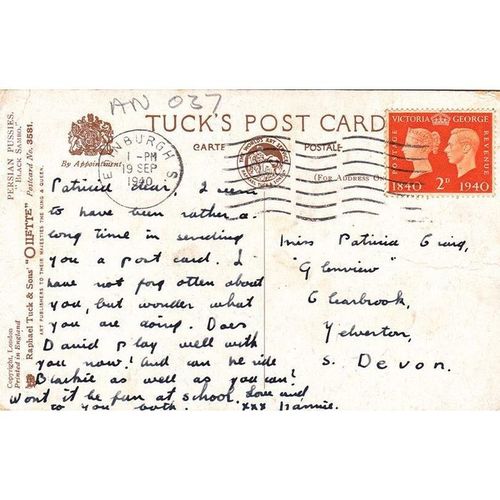 AN 037
TUCK'S POST CARD
CARTE POSTALE
By Appointment
(FOR ADDRESS ON
PERSIAN PUSSIES.
"BLACK SAMBO."
Raphael Tuck & Sons' "OILETTE" Postcard No. 3581.
ART PUBLISHERS TO THEIR MAJESTIES THE KING & QUEEN.
Copyright, London
Printed in England
EDINBURGH
1-PM
19 SEP
1940
VICTORIA GEORGE
POSTAGE
REVENUE
1840 2D 1940
Patricia dear, I seem
to have been rather a
long time in sending
you a post card. I
have not forgotten about
you, but wonder what
you are doing. Does
David play well with
you now! And can he ride
Blackie as well as you can!
Wont it be fun at school. Love and
to you both. xxx Nannie.
Miss Patricia Craig,
"Glenview"
Clearbrook,
Yelverton,
S. Devon.